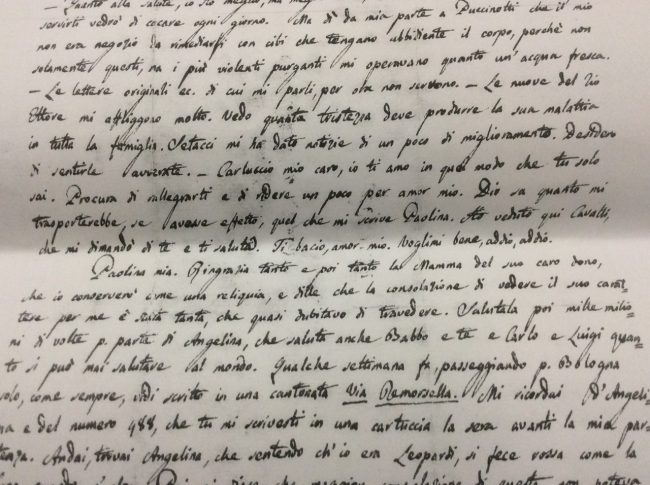 – Quanto alla salute, io sto meglio, ma
servirti vedrò di cacare ogni giorno. Ma dì da mia parte a Puccinotti che il mio
non era negozio da rimediarsi con cibi che tengano ubbidiente il corpo, perchè non
solamente questi, ma i più violenti purganti mi operavano quanto un'acqua fresca.
– Le lettere originali ec. di cui mi parli, per ora non servono. – Le nuove del Zio
Ettore mi affliggono molto. Vedo quanta tristezza deve produrre la sua malattia
in tutta la famiglia. Setacci mi ha dato notizie di un poco di miglioramento. Desidero
di sentirle avverate. – Carluccio mio caro, io ti amo in quel modo che tu solo
sai. Procura di rallegrarti e di ridere un poco per amor mio. Dio sa quanto mi
trasporterebbe, se avesse effetto, quel che mi scrive Paolina. Ho veduto qui Cavalli,
che mi dimandò di te e ti saluta. Ti bacio, amor mio. Voglimi bene, addio, addio.
Paolina mia. Ringrazia tanto e poi tanto la Mamma del suo caro dono,
che io conserverò come una reliquia, e dille che la consolazione di vedere il suo carat-
tere per me è stata tanta, che quasi dubitavo di travedere. Salutala poi mille milio-
ni di volte p. parte di Angelina, che saluta anche Babbo e te e Carlo e Luigi quan-
to si può mai salutare al mondo. Qualche settimana fa, passeggiando p. Bologna
solo, come sempre, vidi scritto in una cantonata Via Remorsella. Mi ricordai d'Angeli-
na e del numero 488, che tu mi scrivesti in una cartuccia la sera avanti la mia par-
tenza. Andai, trovai Angelina, che sentendo ch'io era Leopardi, si fece rossa come la
maggior consolazione di questa non poteva